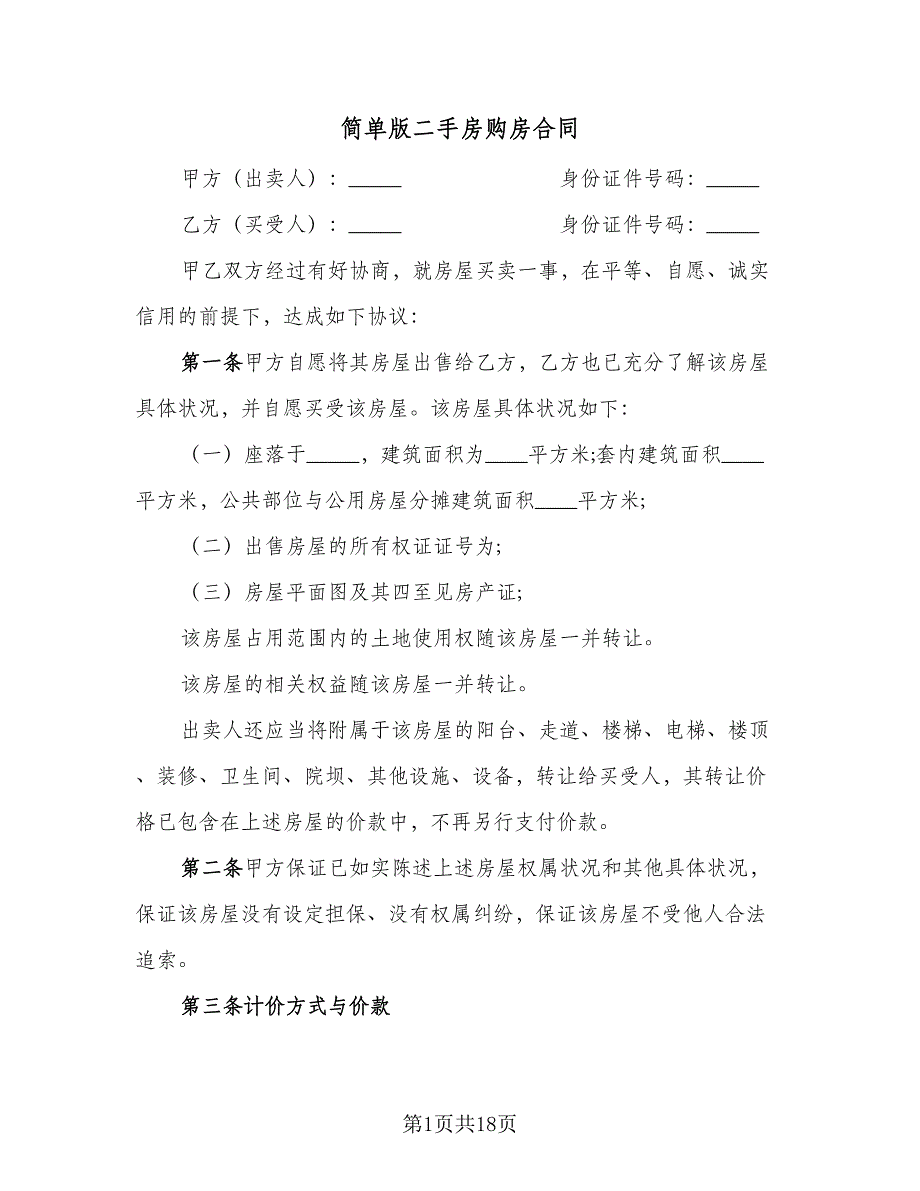 简单版二手房购房合同
甲方（出卖人）：_____ 身份证件号码：_____
乙方（买受人）：_____ 身份证件号码：_____
甲乙双方经过有好协商，就房屋买卖一事，在平等、自愿、诚实
信用的前提下，达成如下协议：
第一条甲方自愿将其房屋出售给乙方，乙方也已充分了解该房屋
具体状况，并自愿买受该房屋。该房屋具体状况如下：
（一）座落于_____，建筑面积为____平方米;套内建筑面积____
平方米，公共部位与公用房屋分摊建筑面积____平方米;
（二）出售房屋的所有权证证号为;
（三）房屋平面图及其四至见房产证;
该房屋占用范围内的土地使用权随该房屋一并转让。
该房屋的相关权益随该房屋一并转让。
出卖人还应当将附属于该房屋的阳台、走道、楼梯、电梯、楼顶
、装修、卫生间、院坝、其他设施、设备，转让给买受人，其转让价
格已包含在上述房屋的价款中，不再另行支付价款。
第二条甲方保证已如实陈述上述房屋权属状况和其他具体状况，
保证该房屋没有设定担保、没有权属纠纷，保证该房屋不受他人合法
追索。
第三条计价方式与价款
第1页共18页